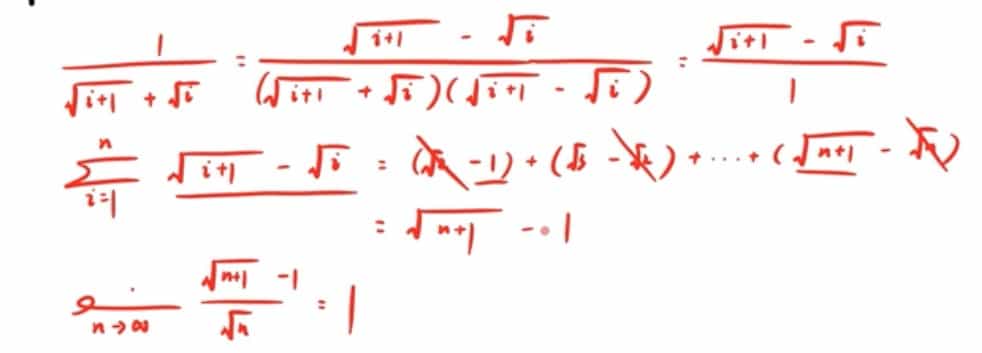 1/(√(i+1) + √i) = (√(i+1) - √i)/((√(i+1) + √i)(√(i+1) - √i)) = (√(i+1) - √i)/1
n∑i=1 √(i+1) - √i = (√2 - 1) + (√3 - √2) + ... + (√(n+1) - √n)
= √(n+1) - 1
lim n→∞ (√(n+1) - 1)/√n = 1